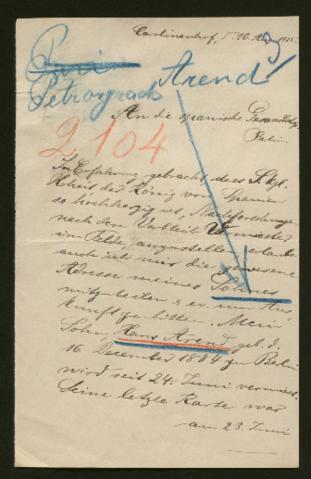 Carolinenhof, d. 10. 1915.
Paris
Arend
Petrograd
An die spanische Gesandtschaft
Berlin.
2104
In Erfahrung gebracht, dass S. kgl.
Hheit der König von Spanien
so hochherzig ist, Nachforschungen
nach dem Verbleib Vermisster
im Felde, anzustellen, erlaube
auch ich mir die genauere
Adresse meines Sohnes
mitzuteilen & er um Aus
kunft zu bitten. Mein
Sohn Hans Arend, geb. d.
16. Dezember 1884 zu Berlin
wird seit 24. Juni vermisst.
Seine letzte Karte war
am 23. Juni